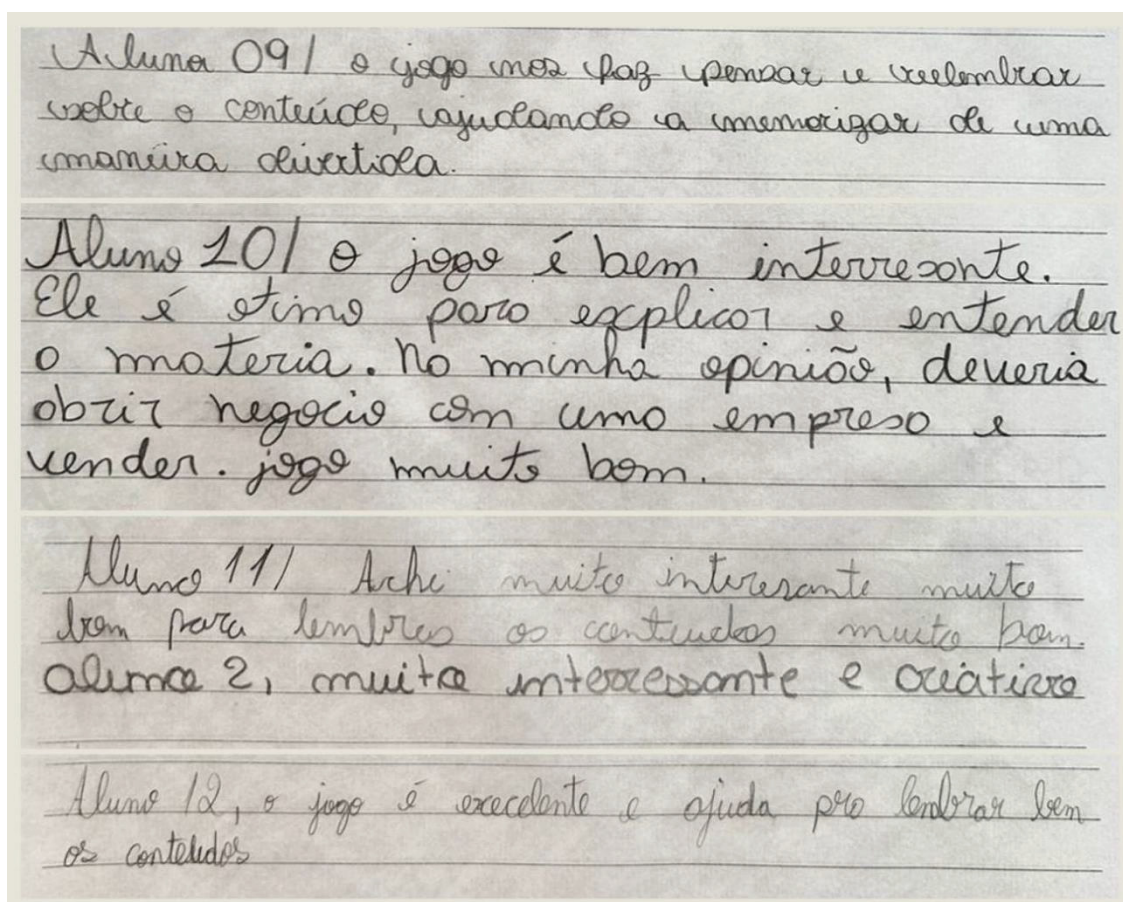 Aluna 09/ o jogo nos faz pensar e reelembrar
sobre o conteúdo, ajudando a memorizar de uma
maneira divertida.
Aluno 10/ O jogo é bem interresante.
Ele é otimo para explicar e entender
a materia. Na minha opinião, deveria
abrir negocio com uma empresa e
vender. jogo muito bom.
Aluno 11/ Achei muito interesante muito
bom para lembras os conteudos muito bom.
aluno 2, muito interressante e criativo
Aluno 12, o jogo é excecelente e ajuda pro lembrar bem
os conteudos